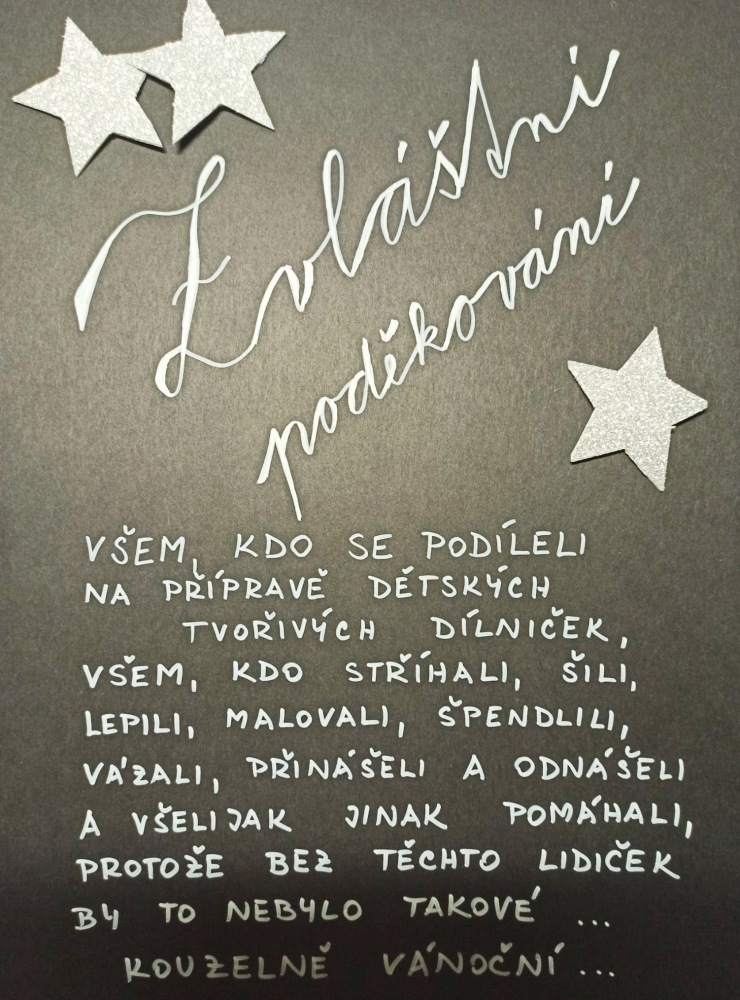 Zvláštní
poděkování
VŠEM, KDO SE PODÍLELI
NA PŘÍPRAVĚ DĚTSKÝCH
TVOŘIVÝCH DÍLNIČEK,
VŠEM, KDO STŘÍHALI, ŠILI,
LEPILI, MALOVALI, ŠPENDLILI,
VÁZALI, PŘINÁŠELI A ODNÁŠELI
A VŠELIJAK JINAK POMÁHALI,
PROTOŽE BEZ TĚCHTO LIDIČEK
BY TO NEBYLO TAKOVÉ ...
KOUZELNĚ VÁNOČNÍ...